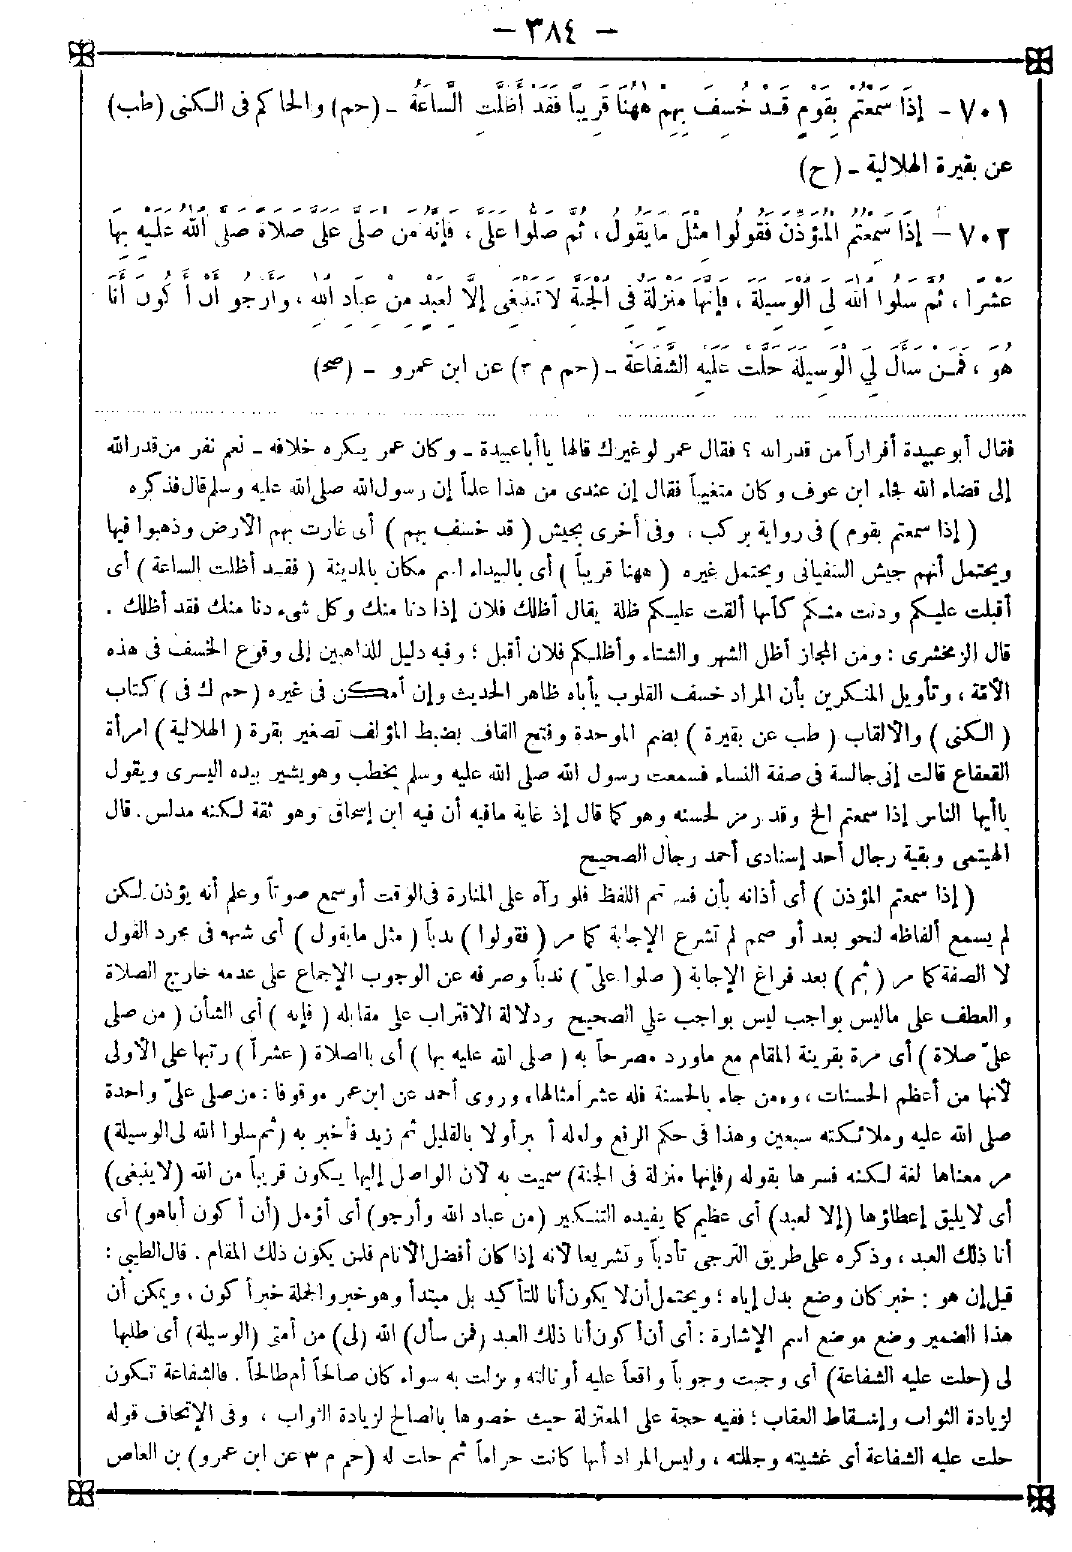 — ٣٨٤ —
٧٠١ - إِذَا سَمِعْتُمْ بِقَوْمٍ قَدْ خُسِفَ بِهِمْ هٰهُنَا قَرِيبًا فَقَدْ أَظَلَّتِ السَّاعَةُ - (حم) والحاكم فى الكنى (طب)
عن بقيرة الهلالية - (ح)
٧٠٢ - إِذَا سَمِعْتُمُ الْمُؤَذِّنَ فَقُولُوا مِثْلَ مَا يَقُولُ ، ثُمَّ صَلُّوا عَلَىَّ ، فَإِنَّهُ مَنْ صَلَّى عَلَىَّ صَلَاةً صَلَّى اللهُ عَلَيْهِ بِهَا
عَشْرًا ، ثُمَّ سَلُوا اللهَ لِىَ الْوَسِيلَةَ ، فَإِنَّهَا مَنْزِلَةٌ فِى الْجَنَّةِ لَا تَنْبَغِى إِلَّا لِعَبْدٍ مِنْ عِبَادِ اللهِ ، وَأَرْجُو أَنْ أَكُونَ أَنَا
هُوَ ، فَمَنْ سَأَلَ لِىَ الْوَسِيلَةَ حَلَّتْ عَلَيْهِ الشَّفَاعَةُ - (حم م ٣) عن ابن عمرو - (صح)
فقال أبو عبيدة أفراراً من قدر الله ؟ فقال عمر لو غيرك قالها يا أبا عبيدة - وكان عمر يكره خلافه - نعم نفر من قدر الله
إلى قضاء الله فجاء ابن عوف وكان متغيباً فقال إن عندى من هذا علماً إن رسول الله صلى الله عليه وسلم قال فذكره
( إذا سمعتم بقوم ) فى رواية بركب ، وفى أخرى بجيش ( قد خسف بهم ) أى غارت بهم الأرض وذهبوا فيها
ويحتمل أنهم جيش السفيانى ويحتمل غيره ( ههنا قريباً ) أى بالبيداء اسم مكان بالمدينة ( فقد أظلت الساعة ) أى
أقبلت عليكم ودنت منكم كأنها ألقت عليكم ظلة يقال أظلك فلان إذا دنا منك وكل شىء دنا منك فقد أظلك .
قال الزمخشرى : ومن المجاز أظل الشهر والشتاء وأظلكم فلان أقبل ؛ وفيه دليل للذاهبين إلى وقوع الخسف فى هذه
الأمة ، وتأويل المنكرين بأن المراد خسف القلوب يأباه ظاهر الحديث وإن أمكن فى غيره ( حم ك فى ) كتاب
( الكنى ) والألقاب ( طب عن بقيرة ) بضم الموحدة وفتح القاف بضبط المؤلف تصغير بقرة ( الهلالية ) امرأة
القعقاع قالت إنى جالسة فى صفة النساء فسمعت رسول الله صلى الله عليه وسلم يخطب وهو يشير بيده اليسرى ويقول
يا أيها الناس إذا سمعتم الخ وقد رمز لحسنه وهو كما قال إذ غاية مافيه أن فيه ابن إسحاق وهو ثقة لكنه مدلس . قال
الهيتمى وبقية رجال أحد إسنادى أحمد رجال الصحيح
( إذا سمعتم المؤذن ) أى أذانه بأن فسر تم اللفظ فلو رآه على المنارة فى الوقت أو سمع صوتاً وعلم أنه يؤذن لكن
لم يسمع ألفاظه لنحو بعد أو صمم لم تشرع الإجابة كما مر ( فقولوا ) ندباً ( مثل مايقول ) أى شبهه فى مجرد القول
لا الصفة كما مر ( ثم ) بعد فراغ الإجابة ( صلوا علىّ ) ندباً وصرفه عن الوجوب الإجماع على عدمه خارج الصلاة
والعطف على ماليس بواجب ليس بواجب على الصحيح ودلالة الاقتراب على مقابله ( فإنه ) أى الشأن ( من صلى
علىّ صلاة ) أى مرة بقرينة المقام مع ماورد مصرحاً به ( صلى الله عليه بها ) أى بالصلاة ( عشراً ) رتبها على الأولى
لأنها من أعظم الحسنات ، ومن جاء بالحسنة فله عشر أمثالها، وروى أحمد عن ابن عمر موقوفا : من صلى علىّ واحدة
صلى الله عليه وملائكته سبعين وهذا فى حكم الرفع ولعله أخبر أولا بالقليل ثم زيد فأخبر به (ثم سلوا الله لى الوسيلة)
مر معناها لغة لكنه فسرها بقوله (فإنها منزلة فى الجنة) سميت به لأن الواصل إليها يكون قريباً من الله (لاينبغى)
أى لايليق إعطاؤها (إلا لعبد) أى عظيم كما يفيده التنكير (من عباد الله وأرجو) أى أؤمل (أن أكون أناهو) أى
أنا ذلك العبد ، وذكره على طريق الترجى تأدباً وتشريعا لأنه إذا كان أفضل الأنام فلمن يكون ذلك المقام . قال الطيبى :
قيل إن هو : خبر كان وضع بدل إياه ؛ ويحتمل أن لا يكون أنا للتأكيد بل مبتدأ وهو خبر والجملة خبر أكون ، ويمكن أن
هذا الضمير وضع موضع اسم الإشارة : أى أن أكون أنا ذلك العبد (فمن سأل) الله (لى) من أمتى (الوسيلة) أى طلبها
لى (حلت عليه الشفاعة) أى وجبت وجوباً واقعاً عليه أو نالته ونزلت به سواء كان صالحاً أم طالحاً . فالشفاعة تكون
لزيادة الثواب وإسقاط العقاب ؛ ففيه حجة على المعتزلة حيث خصوها بالصالح لزيادة الثواب ، وفى الإتحاف قوله
حلت عليه الشفاعة أى غشيته وجللته ، وليس المراد أنها كانت حراماً ثم حلت له (حم م ٣ عن ابن عمرو) بن العاص